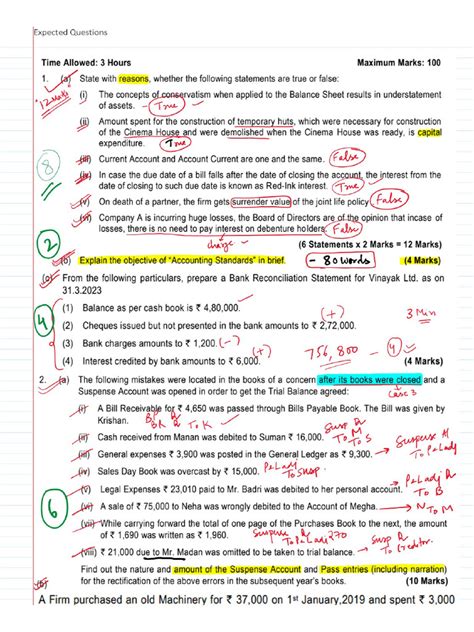 Expected Questions
Time Allowed: 3 Hours Maximum Marks: 100
1. (a) State with reasons, whether the following statements are true or false:
"12 Marks"
(i) The concepts of conservatism when applied to the Balance Sheet results in understatement
of assets. - True
(ii) Amount spent for the construction of temporary huts, which were necessary for construction
of the Cinema House and were demolished when the Cinema House was ready, is capital
expenditure. True
8
(iii) Current Account and Account Current are one and the same. False
(iv) In case the due date of a bill falls after the date of closing the account, the interest from the
date of closing to such due date is known as Red-Ink interest. True
(v) On death of a partner, the firm gets surrender value of the joint life policy. False
(vi) Company A is incurring huge losses, the Board of Directors are of the opinion that incase of
losses, there is no need to pay interest on debenture holders. False
charge
(6 Statements x 2 Marks = 12 Marks)
2
(b) Explain the objective of "Accounting Standards" in brief. - 80 words (4 Marks)
(c) From the following particulars, prepare a Bank Reconciliation Statement for Vinayak Ltd. as on
31.3.2023
4
(1) Balance as per cash book is ₹ 4,80,000. (+) 3 Min
(2) Cheques issued but not presented in the bank amounts to ₹ 2,72,000.
(3) Bank charges amounts to ₹ 1,200. (-)
(4) Interest credited by bank amounts to ₹ 6,000. (+) 756,800 (4 Marks)
2. (a) The following mistakes were located in the books of a concern after its books were closed and a
Suspense Account was opened in order to get the Trial Balance agreed: Case 3
(i) A Bill Receivable for ₹ 4,650 was passed through Bills Payable Book. The Bill was given by
Krishan.
(ii) Cash received from Manan was debited to Suman ₹ 16,000. Susp Dr To M To S
(iii) General expenses ₹ 3,900 posted in the General Ledger as ₹ 9,300. Suspense A To P&L adj
(iv) Sales Day Book was overcast by ₹ 15,000. P&L adj To Susp
(v) Legal Expenses ₹ 23,010 paid to Mr. Badri was debited to her personal account. P&L adj Dr To B
6
(vi) A sale of ₹ 75,000 to Neha was wrongly debited to the Account of Megha. N To M
(vii) While carrying forward the total of one page of the Purchases Book to the next, the amount
of ₹ 1,690 was written as ₹ 1,960. Suspense Dr To P&L adj 270
(viii) ₹ 21,000 due to Mr. Madan was omitted to be taken to trial balance. Susp Dr To Creditor
Find out the nature and amount of the Suspense Account and Pass entries (including narration)
for the rectification of the above errors in the subsequent year's books. (10 Marks)
(b)
A Firm purchased an old Machinery for ₹ 37,000 on 1st January,2019 and spent ₹ 3,000